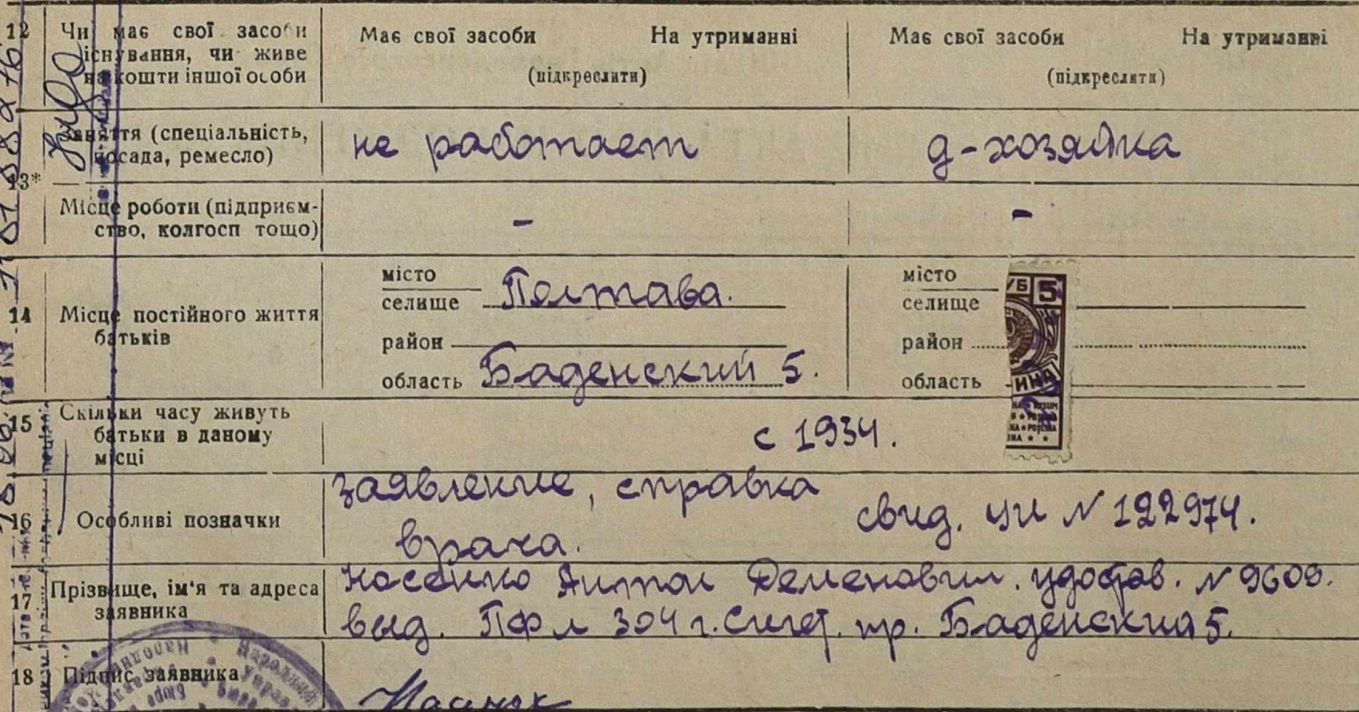 12 Чи має свої засоби існування, чи живе на кошти іншої особи
Має свої засоби На утриманні
(підкреслити)
Має свої засоби На утриманні
(підкреслити)
13*
Заняття (спеціальність, посада, ремесло)
не работает
д-хозяйка
Місце роботи (підприєм-
ство, колгосп тощо)
-
-
14 Місце постійного життя батьків
місто
селище Полтава.
район
область Баденский 5.
місто
селище
район
область
5
15 Скільки часу живуть батьки в даному місці
с 1934.
16 Особливі позначки
заявление, справка
врача.
свид. УИ № 122974.
17 Прізвище, ім'я та адреса заявника
Носенко Антон Деменович. удостов. № 9609.
выд. ПФЛ 304 г. пр. Баденский 5.
18 Підпис заявника